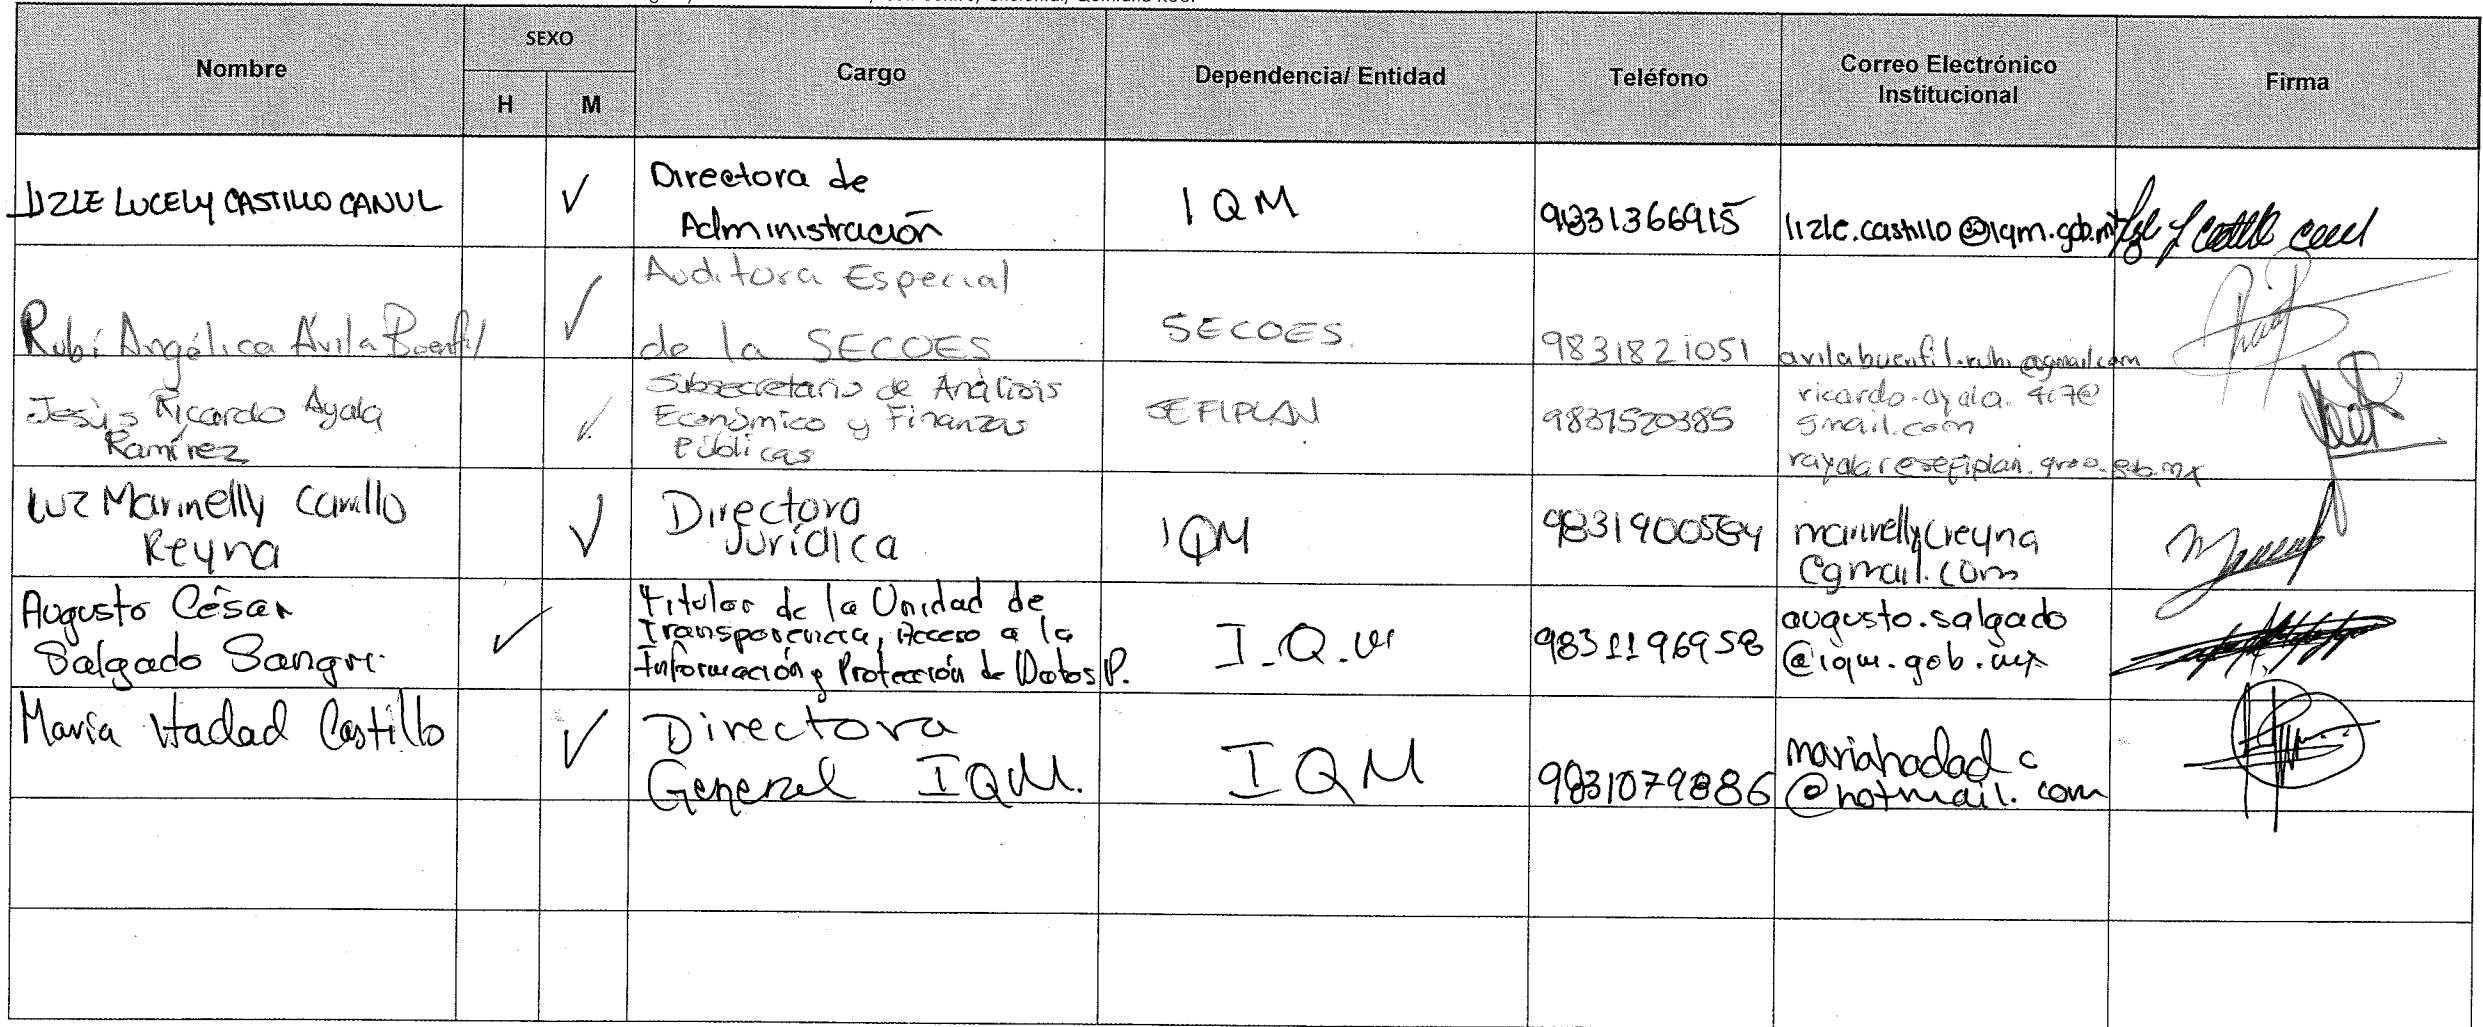 Nombre
SEXO
H
M
Cargo
Dependencia/ Entidad
Teléfono
Correo Electrónico
Institucional
Firma
LIZLE LUCELY CASTILLO CANUL
✓
Directora de
Administración
IQM
9831366915
lizle.castillo@iqm.gob.mx
Rubí Angélica Ávila Buenfil
✓
Auditora Especial
de la SECOES
SECOES.
9831821051
avilabuenfil.rubi@gmail.com
Jesús Ricardo Ayala
Ramírez
✓
Subsecretario de Análisis
Económico y Finanzas
Públicas
SEFIPLAN
9831520385
ricardo.ayala.417@
gmail.com
Luz Marinelly Carrillo
Reyna
✓
Directora
Jurídica
IQM
marinellycreyna
@gmail.com
Augusto César
Salgado Sangri
✓
Titular de la Unidad de
Transparencia, Acceso a la
Información y Protección de Datos P.
I.Q.M
9831196958
augusto.salgado
@iqm.gob.mx
María Hadad Castillo
✓
Directora
General IQM.
IQM
9831079886
mariahadad c
@hotmail.com